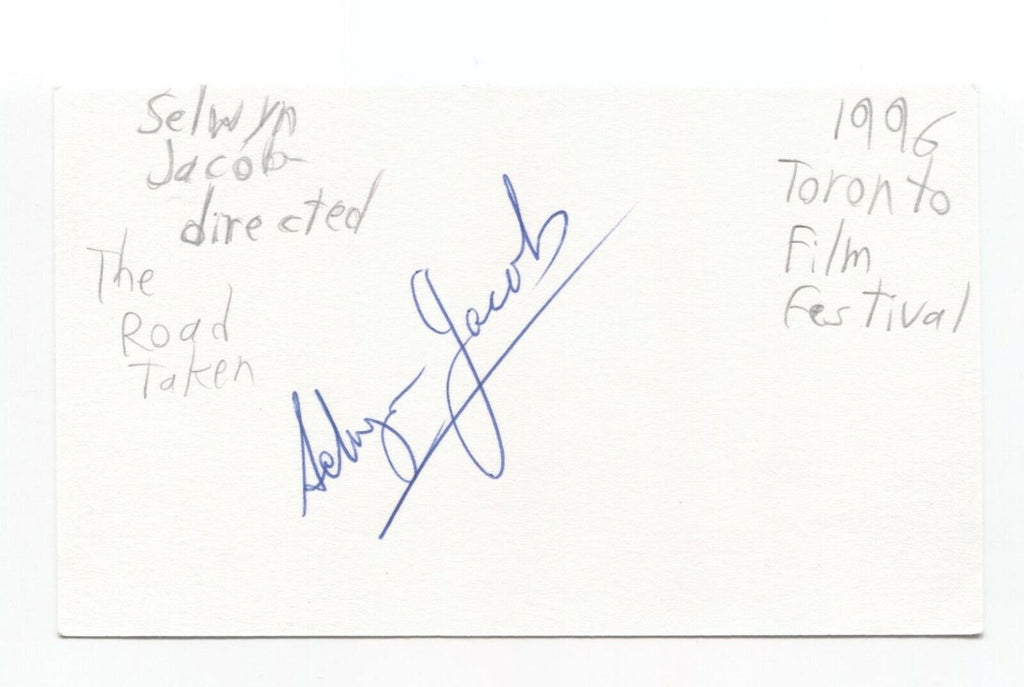 Selwyn
Jacob
directed
The
Road
Taken
1996
Toronto
Film
Festival
Selwyn Jacob